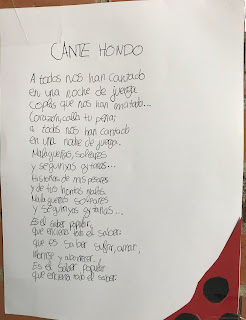 CANTE HONDO
A todos nos han cantado
en una noche de juerga
coplas que nos han matado...
Corazón, calla tu pena;
a todos nos han cantado
en una noche de juerga.
Malagueñas, soleares
y seguiriyas gitanas...
Historias de mis pesares
y de tus horitas malas.
Malagueñas soleares
y seguiriyas gitanas...
Es el saber popular,
que encierra todo el saber:
que es saber sufrir, amar,
morirse y aborrecer.
Es el saber popular
que encierra todo el saber.